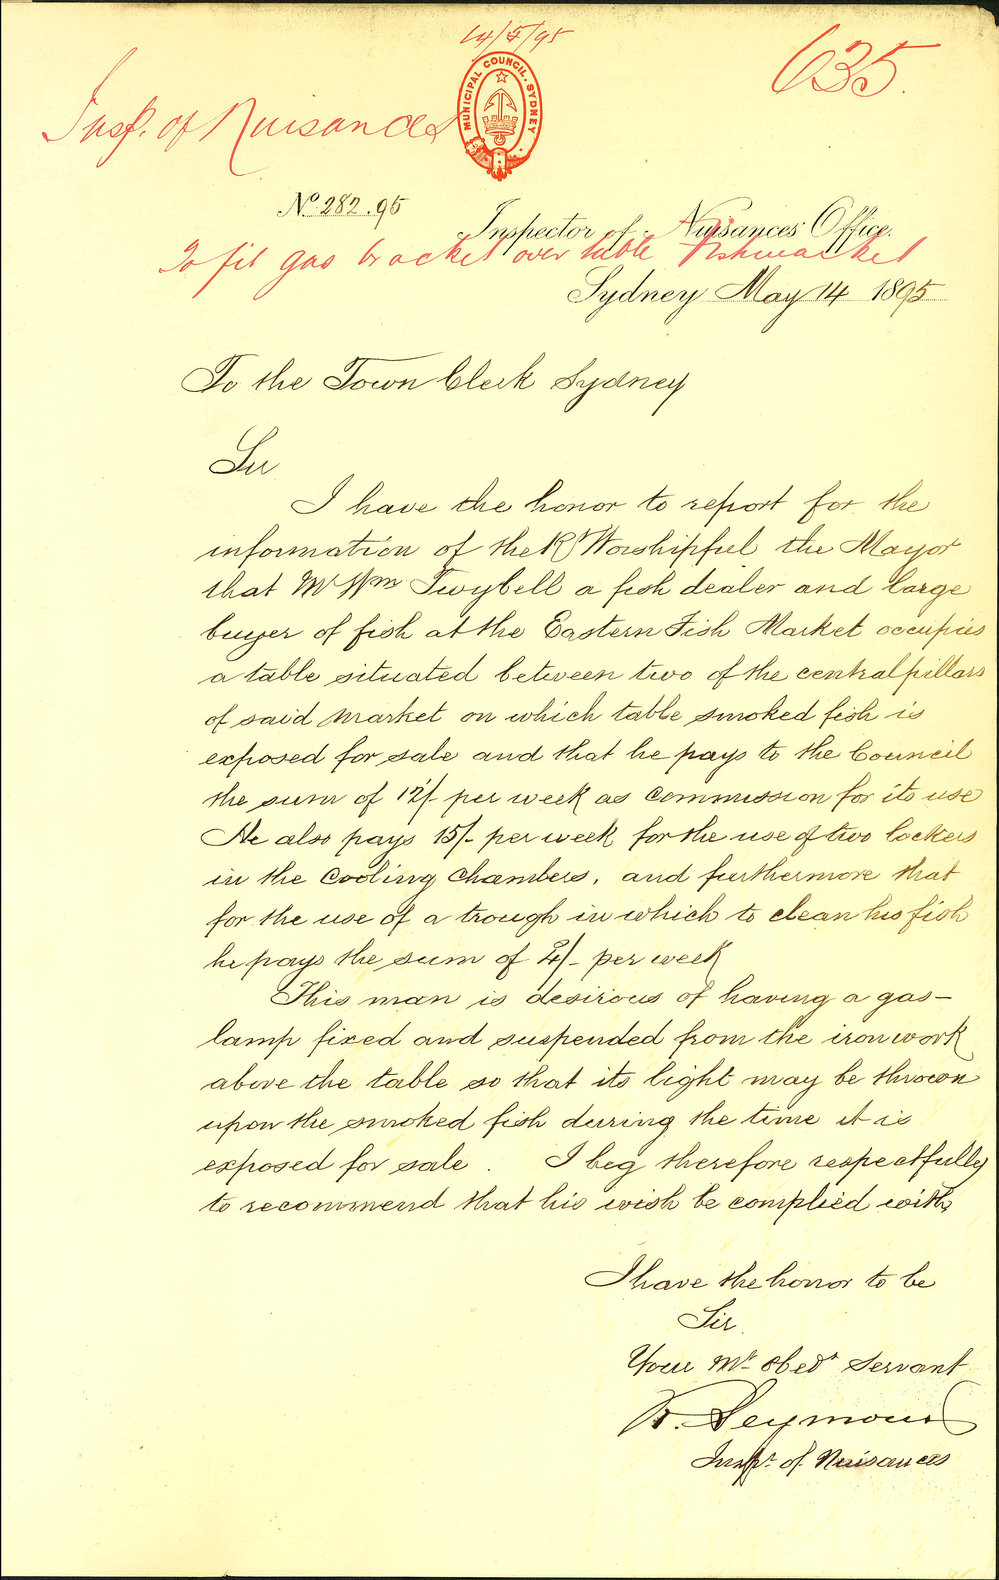 14/5/95
635.
Insp. of Nuisances
MUNICIPAL COUNCIL. SYDNEY.
No 282.95
Inspector of Nuisances Office.
To fit gas bracket over table Fishmarket
Sydney May 14 1895
To the Town Clerk Sydney
Sir
I have the honor to report for the
information of the Rt Worshipful the Mayor
that Mr Wm Twybell a fish dealer and large
buyer of fish at the Eastern Fish Market occupies
a table situated between two of the central pillars
of said market on which table smoked fish is
exposed for sale and that he pays to the Council
the sum of 12/- per week as commission for its use
He also pays 15/- per week for the use of two lockers
in the cooling chambers, and furthermore that
for the use of a trough in which to clean his fish
he pays the sum of /- per week
This man is desirous of having a gas-
lamp fixed and suspended from the ironwork
above the table so that its light may be thrown
upon the smoked fish during the time it is
exposed for sale. I beg therefore respectfully
to recommend that his wish be complied with,
I have the honor to be
Sir.
Your Mt Obedt Servant
R. Seymour
Inspr. of Nuisances